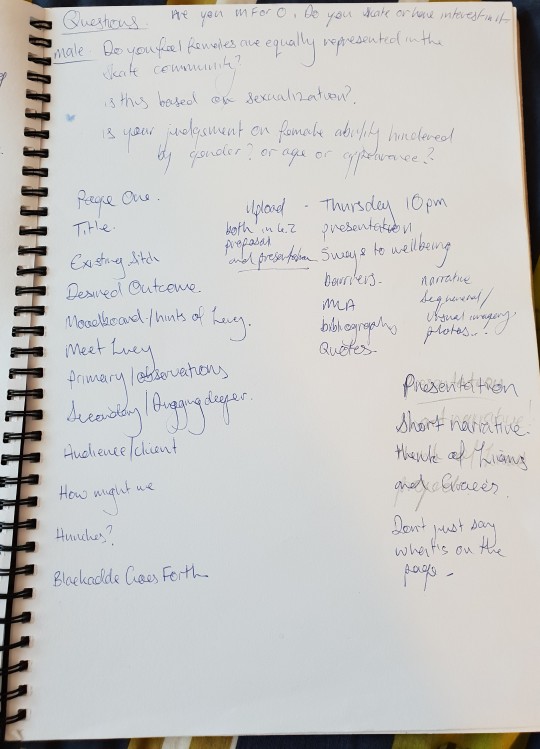 Questions. Are you M F or O. Do you skate or have interest in it
male. Do you feel females are equally represented in the
skate community?
is this based on sexualization?.
is your judgement on female ability hindered
by gender? or age or appearance??
Page One.
Title.
Existing Sitch
Desired Outcome.
Moodboard/hints of Lucy.
Meet Lucy
Primary/observations
Secondary/Digging deeper.
Audience/client
How might we
Hunches?
Blackadde Goes Forth
Upload - Thursday 10pm
both in 4.2
proposal
and presentation
presentation
5 ways to wellbeing
barriers.
MLA
bibliography
Quotes.
narrative
Sequential/
visual imagery.
photos..
Presentation
Short narrative.
think of
and
Dont just say
what's on the
page -